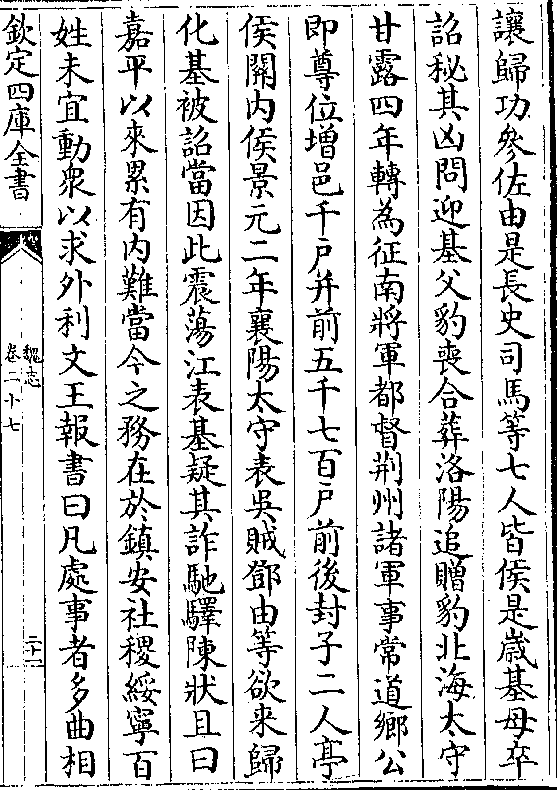 讓歸功參佐由是長史司馬等七人皆侯是嵗基母卒
詔秘其凶問迎基父豹喪合葬洛陽追贈豹北海太守
甘露四年轉為征南將軍都督荆州諸軍事常道鄉公
即尊位增邑千戶并前五千七百戶前後封子二人亭
侯關内侯景元二年襄陽太守表吳賊鄧由等欲来歸
化基被詔當因此震蕩江表基疑其詐馳驛陳狀且曰
嘉平以來累有内難當今之務在於鎮安社稷綏寧百
姓未宜動衆以求外利文王報書曰凡處事者多曲相
欽定四庫全書
魏志
卷二十七
二十一